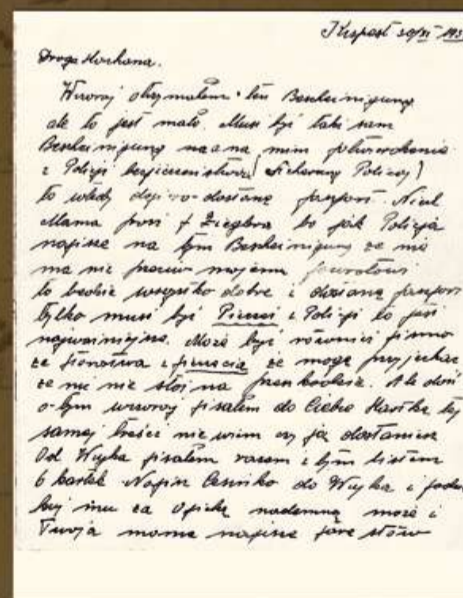 30/XI 193
Droga Kochana.
Wczoraj otrzymałem ten Bescheinigung
ale to jest mało. Musi być taki sam
Bescheinigung na nim potwierdzenie
z Policji bezpieczeństwa (Sicherung Policaj)
to wtedy dopiero dostanę paszport. Niech
Mama prosi p. Zieglera bo jak Policja
napisze na tym Bescheinigung ze nie
ma nic przeciw mojemu powrotowi
to będzie wszystko dobre i dostanę paszport
tylko musi być Pieczęć z Policji to jest
najważniejsze. Może być również pismo
ze starostwa z pieczęcią ze mogę przyjechać
ze mi nic stoi na przeszkodzie. Ale dość
o tym wczoraj pisałem do Ciebie Kartkę tej
samej treści nie wiem czy ją dostaniesz
Od Wujka pisałem razem z tym listem
6 kartek Napisz do Wujka i
mu za opiekę nademną może i
Twoja mama napisze parę słów